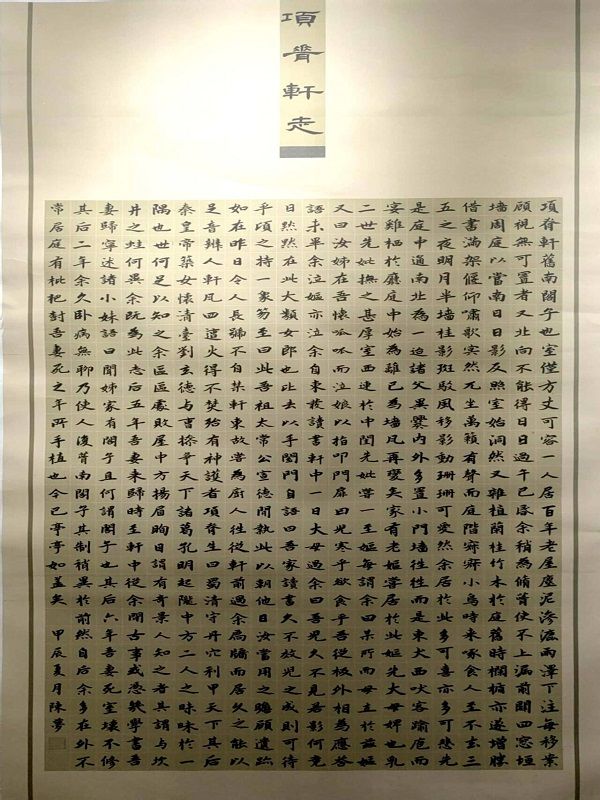 項脊軒走
項脊軒舊南閣子也室僅方丈可容一人居百年老屋塵泥滲漉雨澤下注每移案
顧視無可置者又北向不能得日日過午已昏余稍為修葺使不上漏前闢四窓垣
墻周庭以當南日日影反照室始洞然又雜植蘭桂竹木於庭舊時欄楯亦遂增勝
借書滿架偃仰嘯歌冥然兀坐萬籟有聲而庭階寂寂小鳥時來啄食人至不去三
五之夜明月半墻桂影斑駁風移影動珊珊可愛然余居於此多可喜亦多可悲先
是庭中通南北為一迨諸父異爨內外多置小門墻往往而是東犬西吠客踰庖而
宴雞栖於廳庭中始為籬已為墻凡再變矣家有老嫗嘗居於此嫗先大母婢也乳
二世先妣撫之甚厚室西連於中閨先妣嘗一至嫗每謂余曰某所而母立於茲嫗
又曰汝姊在吾懷呱呱而泣娘以指叩門扉曰兒寒乎欲食乎吾從板外相為應答
語未畢余泣嫗亦泣余自束髮讀書軒中一日大母過余曰吾兒久不見若影何竟
日默默在此大類女郎也比去以手闔門自語曰吾家讀書久不效兒之成則可待
乎頃之持一象笏至曰此吾祖太常公宣德間執此以朝他日汝當用之瞻顧遺跡
如在昨日令人長號不自禁軒東故嘗為廚人往從軒前過余扃牖而居久之能以
足音辨人軒凡四遭火得不焚殆有神護者項脊生曰蜀清守丹穴利甲天下其后
秦皇帝築女懷清臺劉玄德与曹操爭天下諸葛孔明起隴中方二人之昧昧於一
隅也世何足以知之余區區處敗屋中方揚眉瞬目謂有奇景人知之者其謂与坎
井之蛙何異余既為此志后五年吾妻來歸時至軒中從余問古事或憑几學書吾
妻歸寧述諸小妹語曰聞姊家有閣子且何謂閣子也其后六年吾妻死室壞不修
其后二年余久臥病無聊乃使人復葺南閣子其制稍異於前然自后余多在外不
常居庭有枇杷樹吾妻死之年所手植也今已亭亭如蓋矣 甲辰夏月陳夢